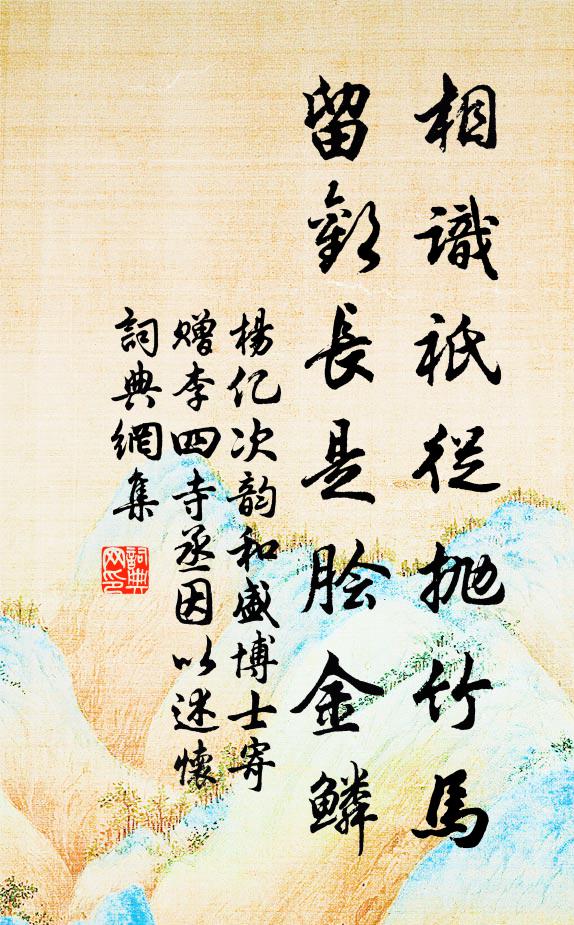 相識祇從抛竹馬
留歡長是膾金鱗
楊億次韵和盛博士寄
贈李四寺丞因以述懷
詞典網集
詞典
网印